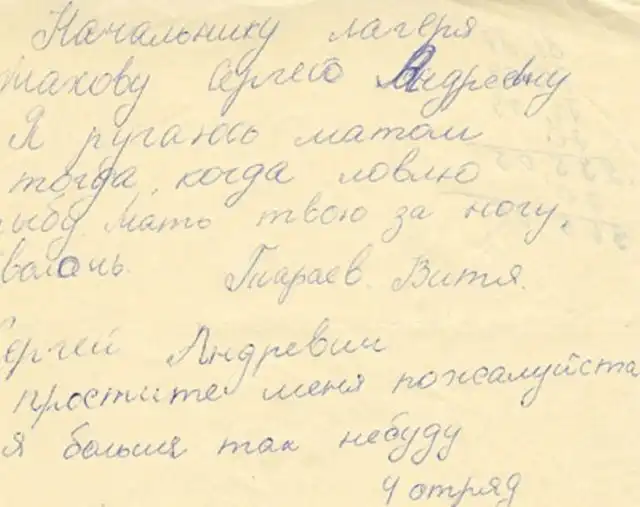 Начальнику лагеря
тахову Сергею Андреевну
Я ругаюсь матом
тогда, когда ловлю
ыбу. Мать твою за ногу,
волочь. Тараев. Витя.
Сергей Андревич
простите меня пожалуйста
я больше так небуду
4 отряд